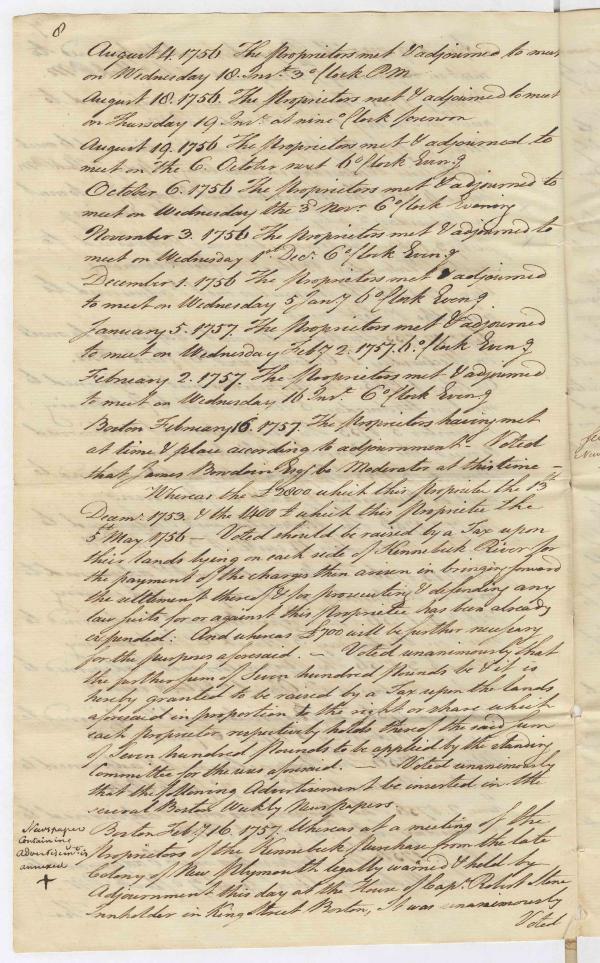 8
August 4. 1756 The Proprietors met & adjourned to meet
on Wednesday 18. Inst. 3 o'Clock P.M
August 18. 1756. The Proprietors met & adjourned to meet
on Thursday 19 Inst. at nine o'Clock forenoon
August 19. 1756 The Proprietors met & adjourned to
meet on the 6. October next 6 o'Clock Eveng
October 6. 1756 The Proprietors met & adjourned to
meet on Wednesday the 3d Novr. 6 o'Clock Evening
November 3. 1756 The Proprietors met & adjourned to
meet on Wednesday 1st Decr. 6 o'Clock Eveng
December 1. 1756 The Proprietors met & adjourned
to meet on Wednesday 5 Jany 6 o'Clock Eveng
January 5. 1757. The Proprietors met & adjourned
to meet on Wednesday Feby 2. 1757. 6 o'Clock Eveng
February 2. 1757. The Proprietors met & adjourned
to meet on Wednesday 16 Inst. 6 o'Clock Eveng
Boston February 16. 1757. The Proprietors having met
at time & place according to adjournment. Voted
that James Bowdoin Esq be Moderator at this time —
Whereas the £2800 which this Proprietee the 13th
Decemr. 1753. & the 1400£ which this Proprietee the
5th May 1756 — Voted should be raised by a Tax upon
their lands lying on each side of Kennebeck River for
the payment of the charges then arisen in bringing forward
the settlement thereof & for prosecuting & defending any
law suits for or against this Proprietee has been already
expended: And whereas £700 will be further necessary
for the purposes aforesaid. — Voted unanimously that
the further sum of Seven hundred Pounds be & it is
hereby granted to be raised by a Tax upon the lands
aforesaid in proportion to the right or share which
each proprietor respectively holds thereof the said sum
of Seven hundred Pounds to be applied by the standing
Committee for the uses aforesaid. — Voted unanimously
that the following Advertisement be inserted in the
several Boston Weekly Newspapers
Newspaper
Containing
Advertisement is
annexed
+
Boston Feby 16. 1757. Whereas at a meeting of the
Proprietors of the Kennebeck purchase from the late
Colony of New Plymouth legally warned & held by
Adjournment this day at the House of Capt. Robert Stone
Innholder in King Street Boston, It was unanimously
Voted